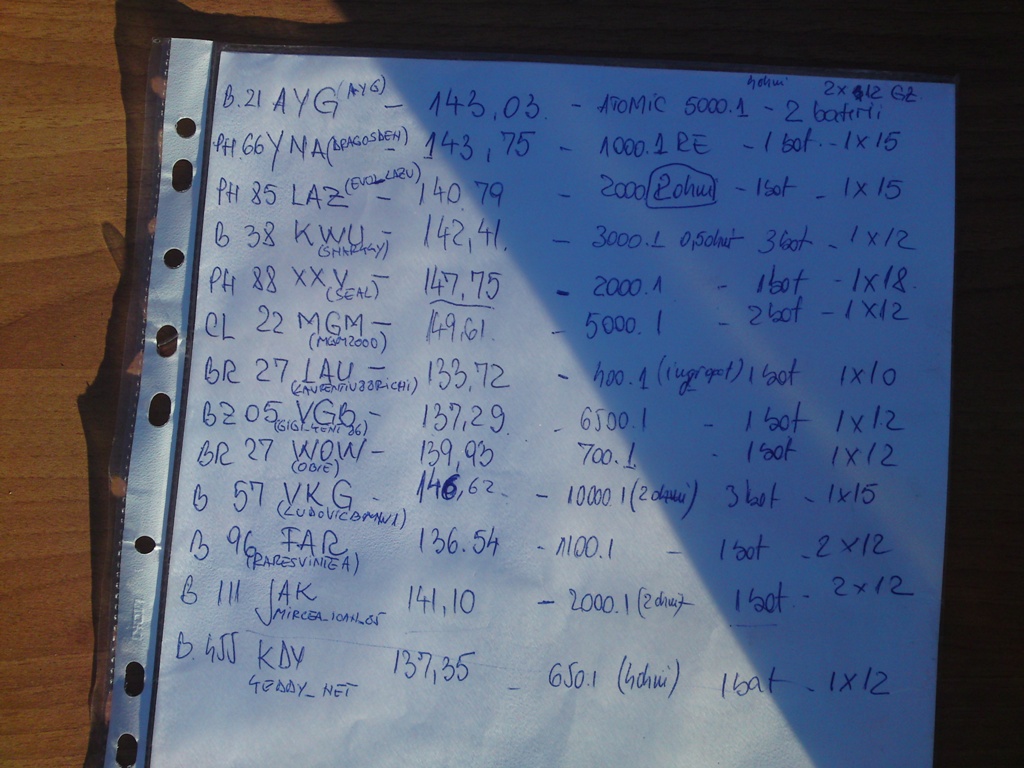 4ohmi 2x 12 GZ.
B.21 AYG (AYG) - 143,03 - ATOMIC 5000.1 - 2 baterii
PH.66 YNA (DRAGOSDEH) - 143,75 - 1000.1 RE - 1 bat. - 1x15
PH 85 LAZ (EVOL_LAZU) - 140,79 - 2000 2ohmi - 1bat - 1x15
B 38 KWU - 142,41. - 3000.1 0,5ohmi 3bat - 1x12
PH 88 XXV - 147,75 - 2000.1 - 1bat - 1x18
(SEAL)
CL 22 MGM - 149,61 - 5000.1 - 2bat - 1x12
(MGM2000)
BR 27 LAU - 133,72 - 400.1 1 bat 1x10
(LAURENTIUBBRICHI)
BZ 05 VGB - 137,29 6500.1 - 1 bat - 1x12
BR 27 WOW - 139,93 700.1 - 1bat 1x12
(OBIE)
B 57 VKG - 146,62 - 10000.1 (2ohmi) 3bat - 1x15
B 96 FAR 136.54 - 1100.1 - 1bat - 2x12
(RARESVINTEA)
B 111 JAK 141,10 - 2000.1 (2ohmi) 1bat - 2x12
MIRCEA_IOAN_65
B.455 KDY 137,35 - 650.1 (4ohmi) 1bat - 1x12
TEDDY_NET